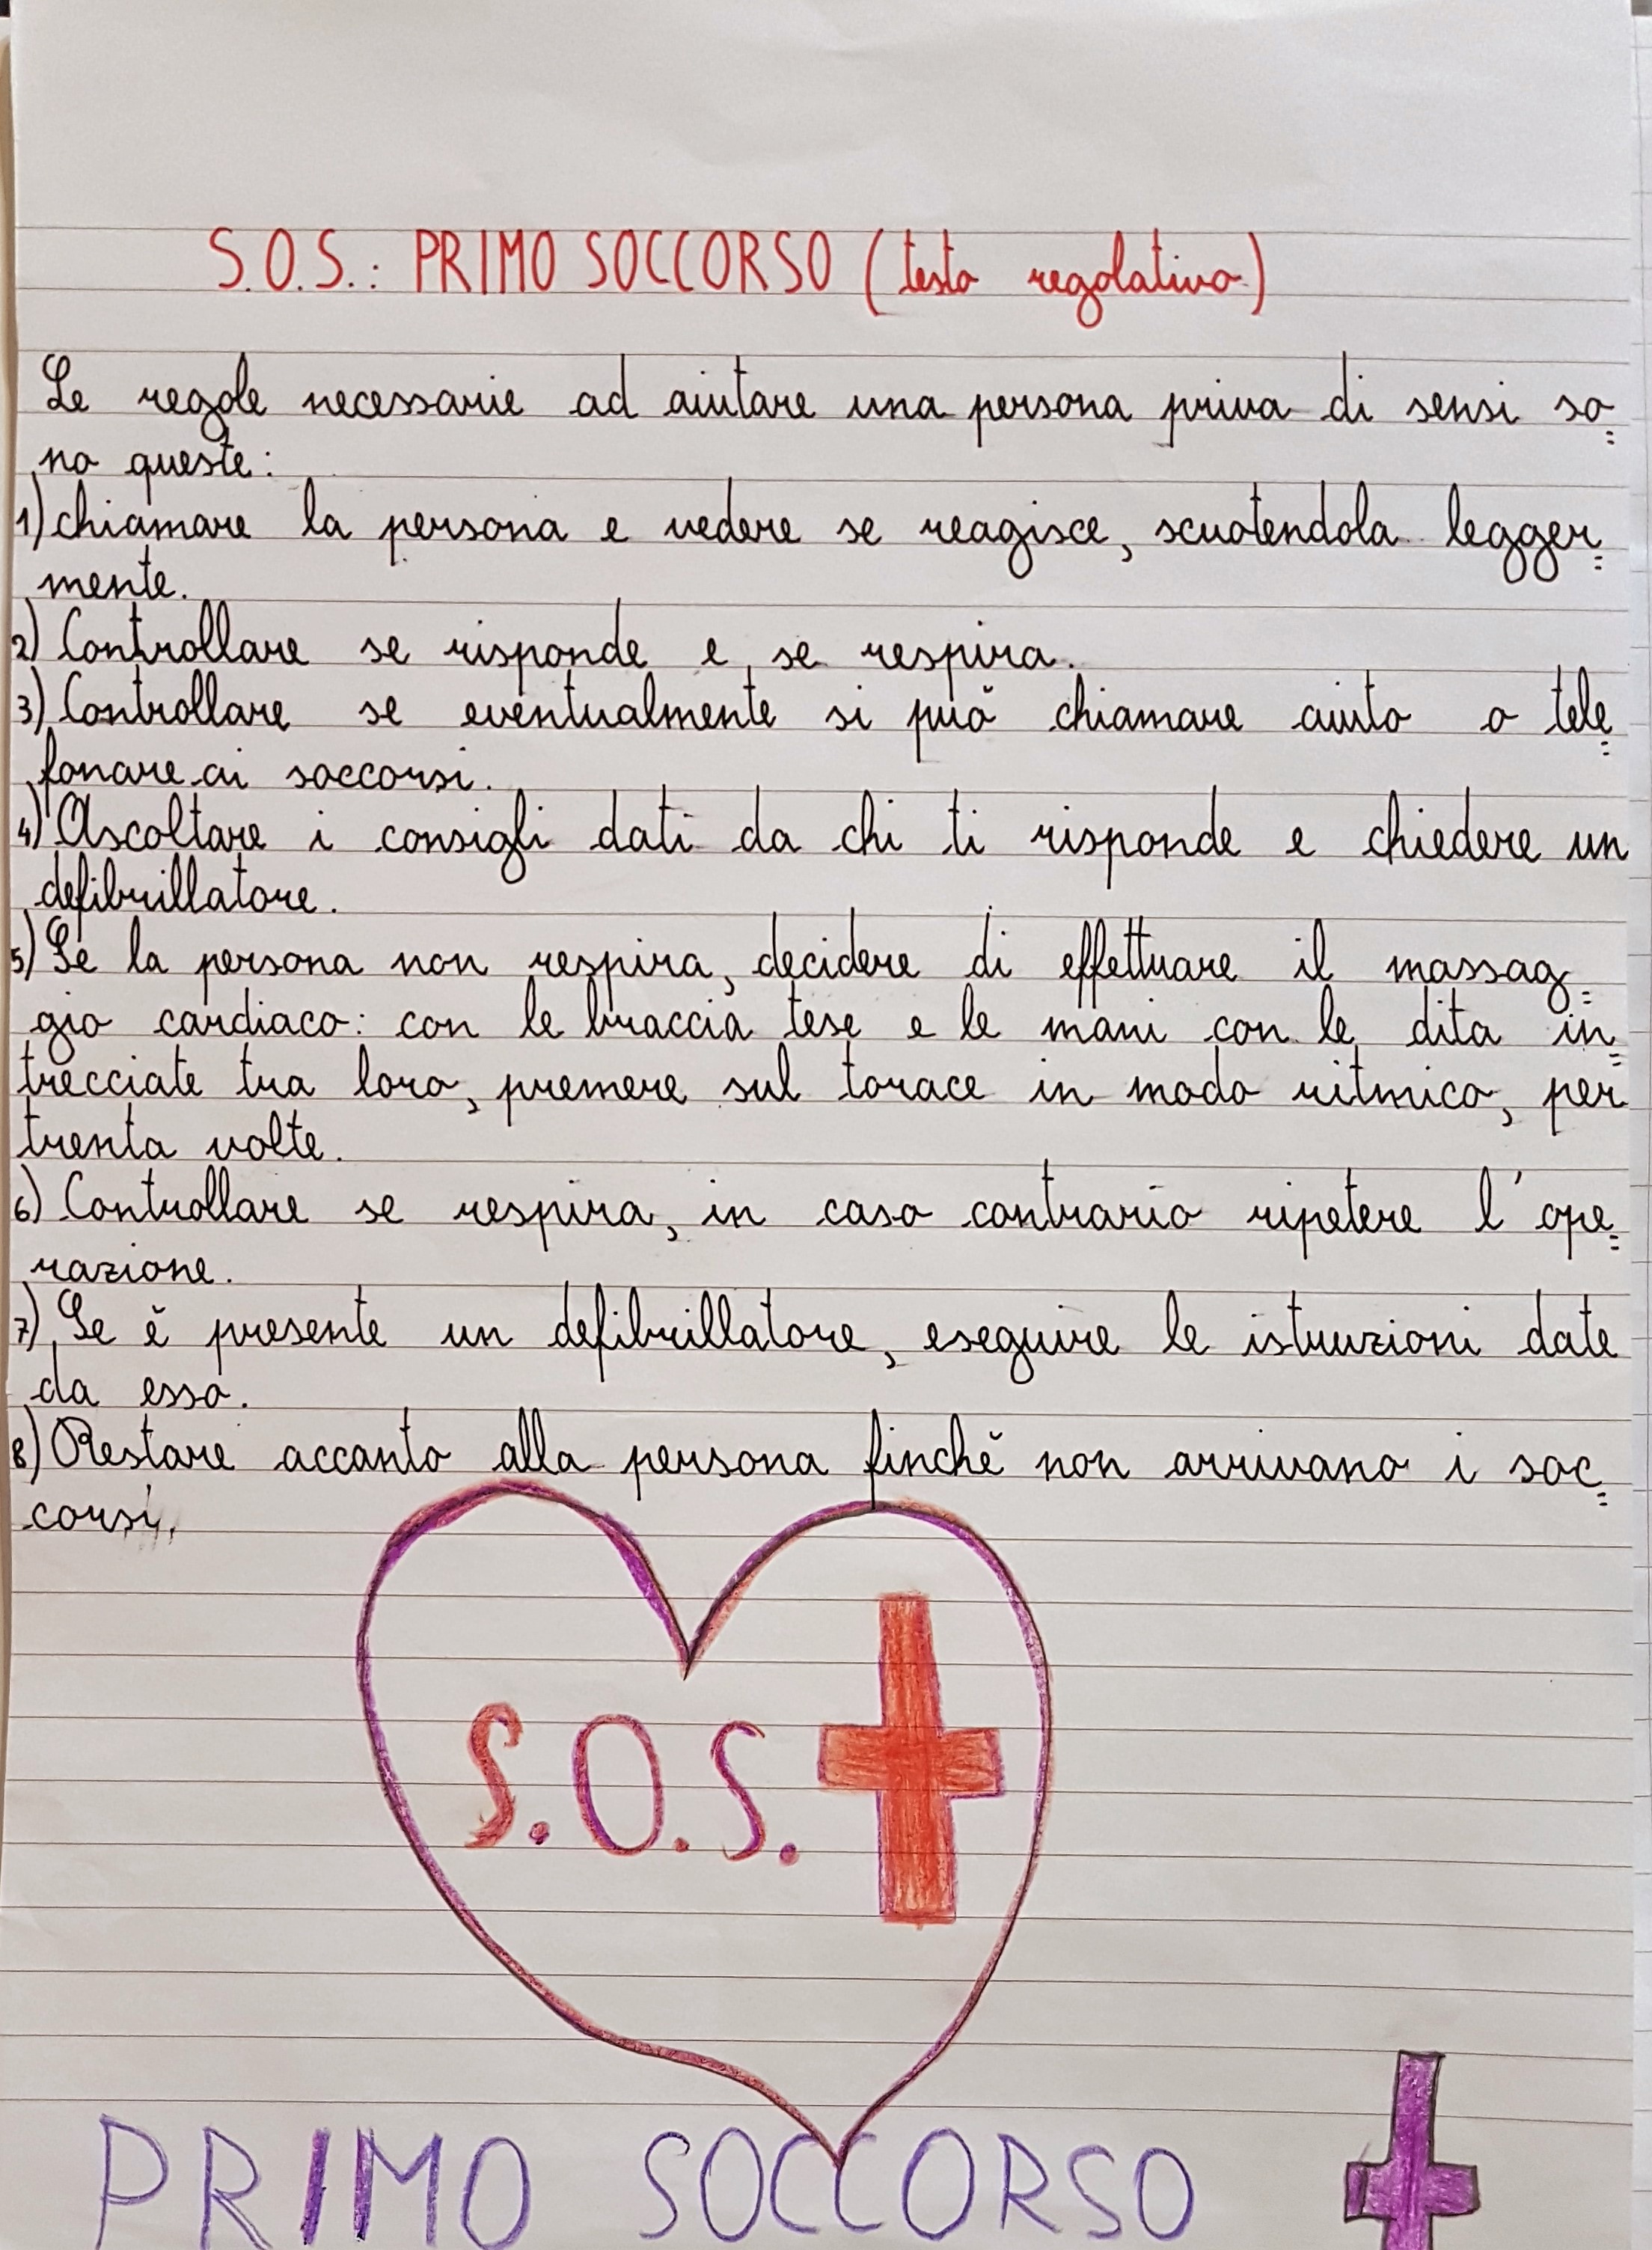 S.O.S.: PRIMO SOCCORSO (testo regolativo)
Le regole necessarie ad aiutare una persona priva di sensi so=
no queste:
1) chiamare la persona e vedere se reagisce, scuotendola legger=
mente.
2) Controllare se risponde e se respira.
3) Controllare se eventualmente si può chiamare aiuto o tele=
fonare ai soccorsi.
4) Ascoltare i consigli dati da chi ti risponde e chiedere un
defibrillatore.
5) Se la persona non respira, decidere di effettuare il massag=
gio cardiaco: con le braccia tese e le mani con le dita in=
trecciate tra loro, premere sul torace in modo ritmico, per
trenta volte.
6) Controllare se respira, in caso contrario ripetere l'ope=
razione.
7) Se è presente un defibrillatore, eseguire le istruzioni date
da esso.
8) Restare accanto alla persona finchè non arrivano i soc=
corsi.
S.O.S.
PRIMO SOCCORSO